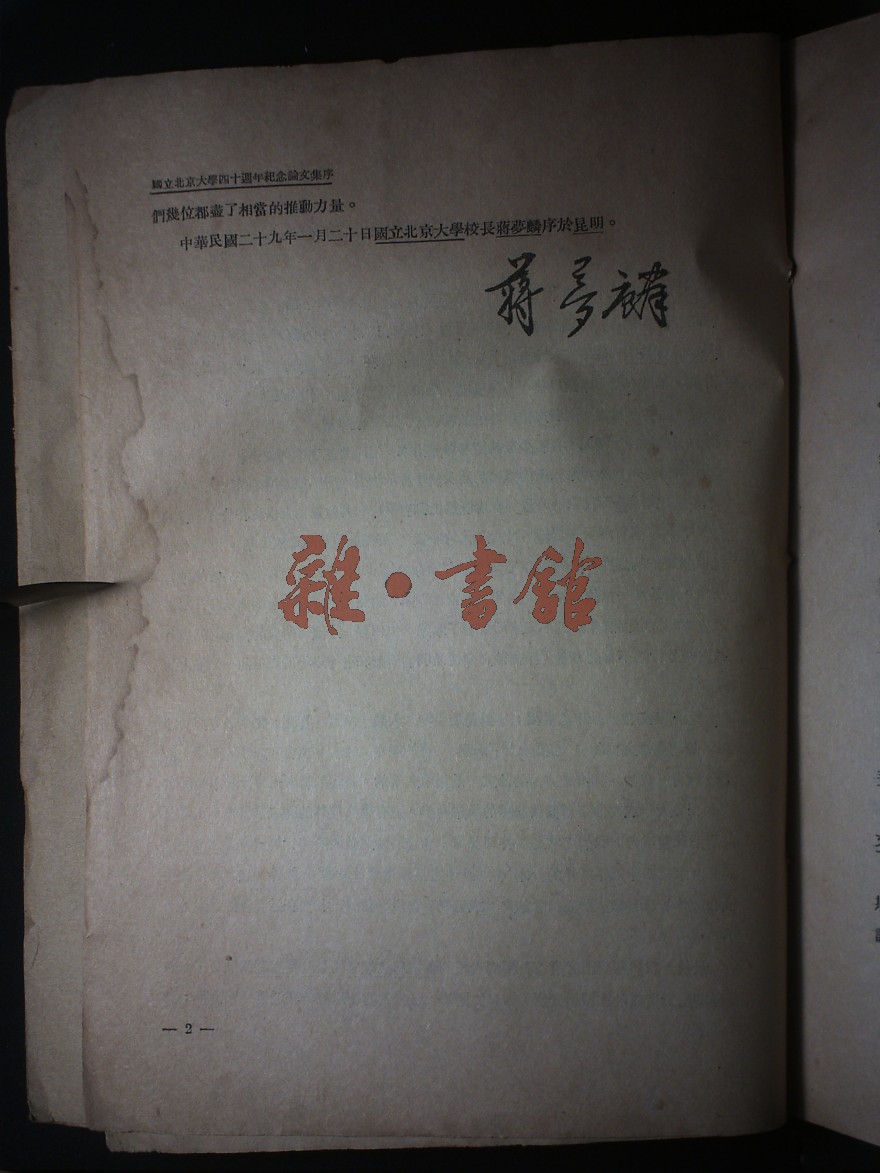 國立北京大學四十週年紀念論文集序
們幾位都盡了相當的推動力量。
中華民國二十九年一月二十日國立北京大學校長蔣夢麟序於昆明。
蔣夢麟
雜·書館
— 2 —